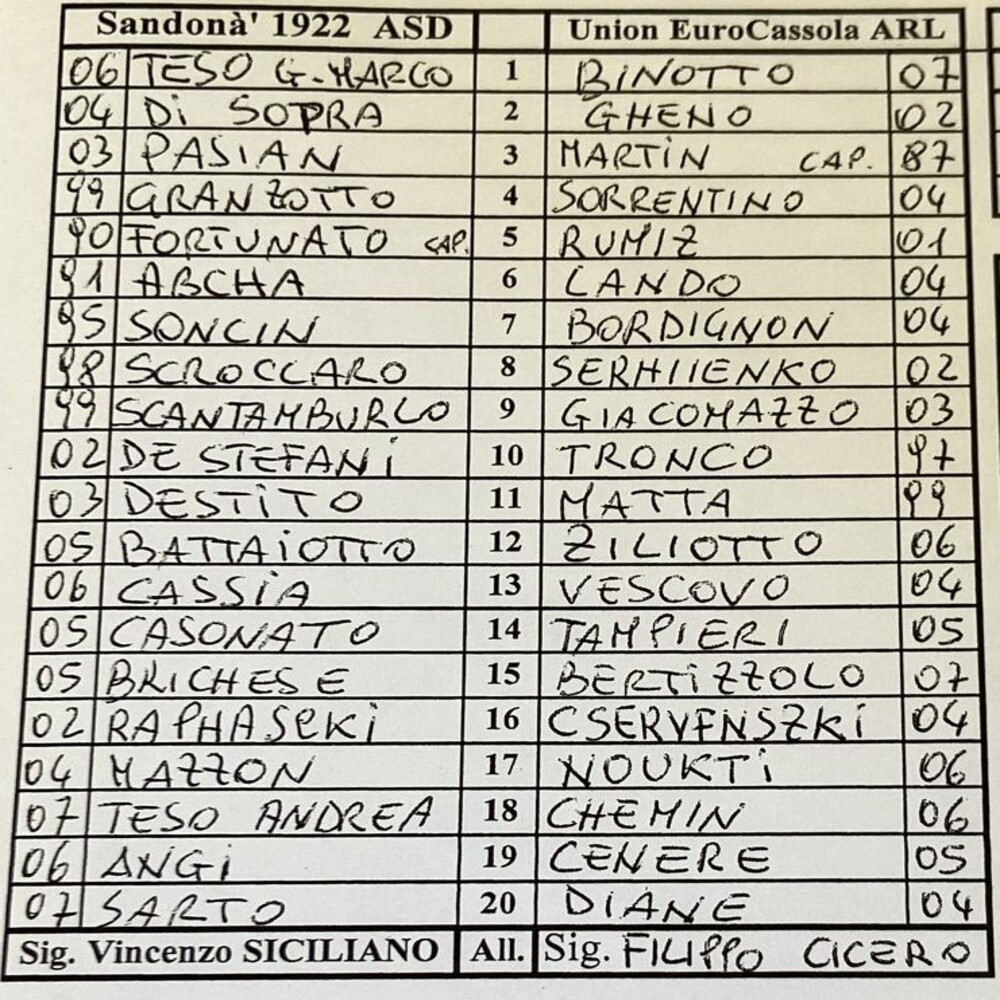 Sandonà' 1922 ASD Union EuroCassola ARL
06 TESO G.MARCO 1 BINOTTO 07
04 Di SOPRA 2 GHENO 02
03 PASIAN 3 MARTiN CAP. 87
99 GRANZOTTO 4 SORRENTINO 04
90 FORTUNATO CAP. 5 RUMIZ 01
91 ABCHA 6 LANDO 04
95 SONCIN 7 BORDIGNON 04
98 SCROCCARO 8 SERHIIENKO 02
99 SCANTAMBURLO 9 GIACOMAZZO 03
02 DE STEFANi 10 TRONCO 97
03 DESTiTO 11 MATTA 99
05 BATTAiOTTO 12 ZILIOTTO 06
06 CASSiA 13 VESCOVO 04
05 CASONATO 14 TAMPIERI 05
05 BRICHESE 15 BERTiZZOLO 07
02 RAPHASEKi 16 CSERVENSZKi 04
04 MAZZON 17 NOUKTi 06
07 TESO ANDREA 18 CHEMIN 06
06 ANGi 19 CENERE 05
07 SARTO 20 DIANE 04
Sig. Vincenzo SICILIANO All. Sig. FILIPPO CICERO